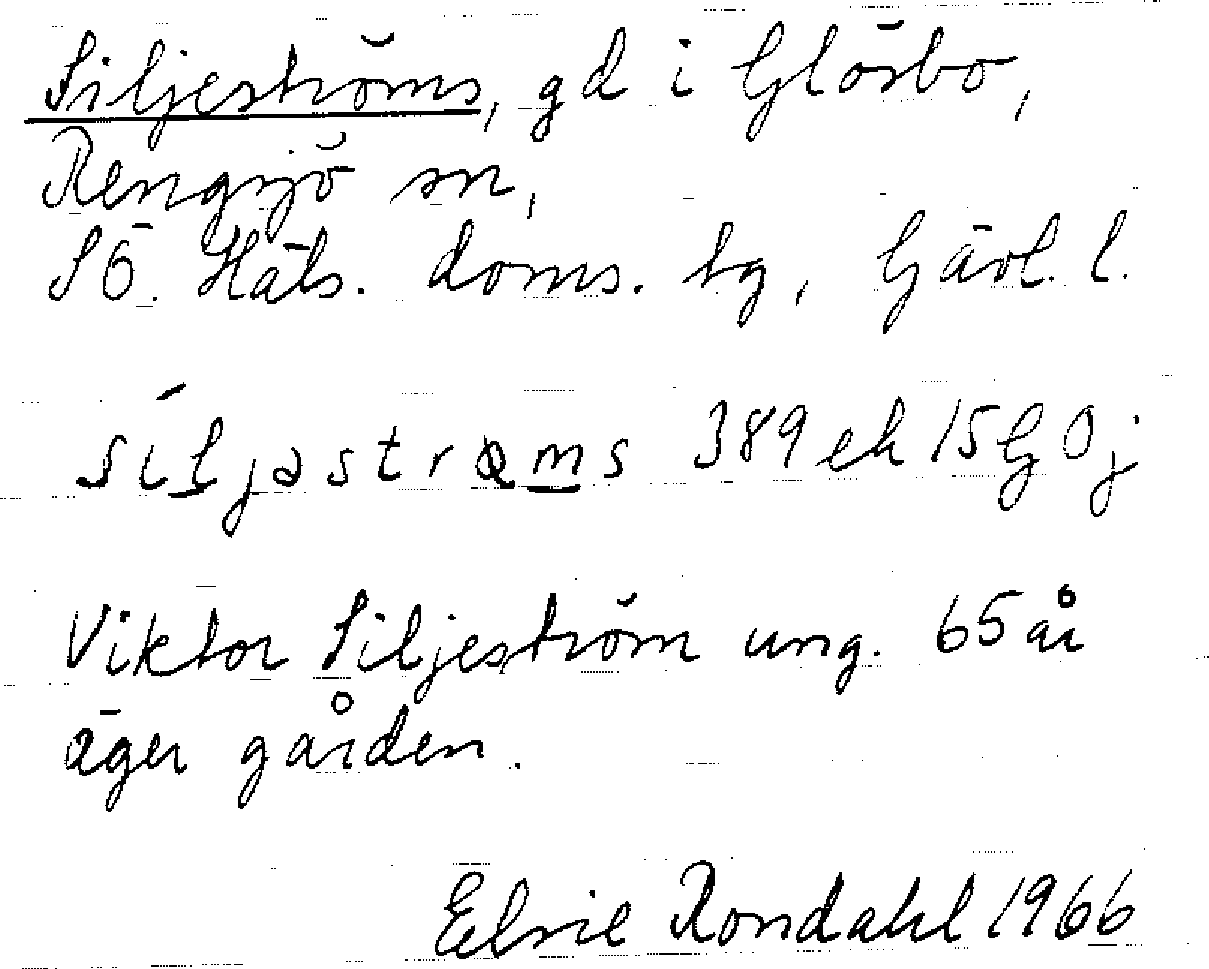 Siljeströms, gd i Glösbo,
Rengsjö sn,
SÖ. Häls. doms. tg, Gävl. l.
389 ek 15G0j
Viktor Siljeström ung. 65 år
äger gården.
Elsie Rondahl 1966